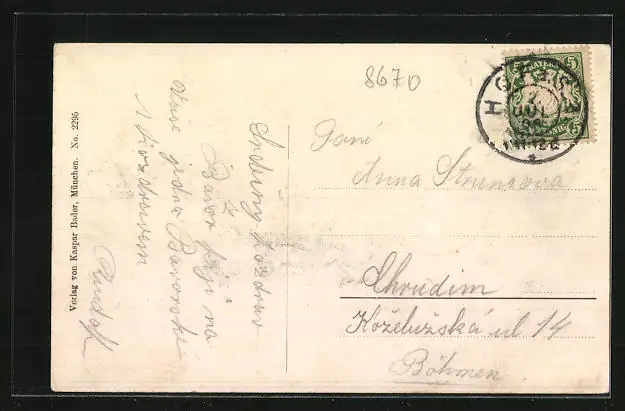 8670
BAYERN
Verlag von Kaspar Bader, München. No. 2295
Srdečný pozdrav
z
na
Vaše jedna Bavorské
s pozdravem
Rudolf
Paní
Anna Strunzova
Chrudim
Koželužská ul 14
Böhmen